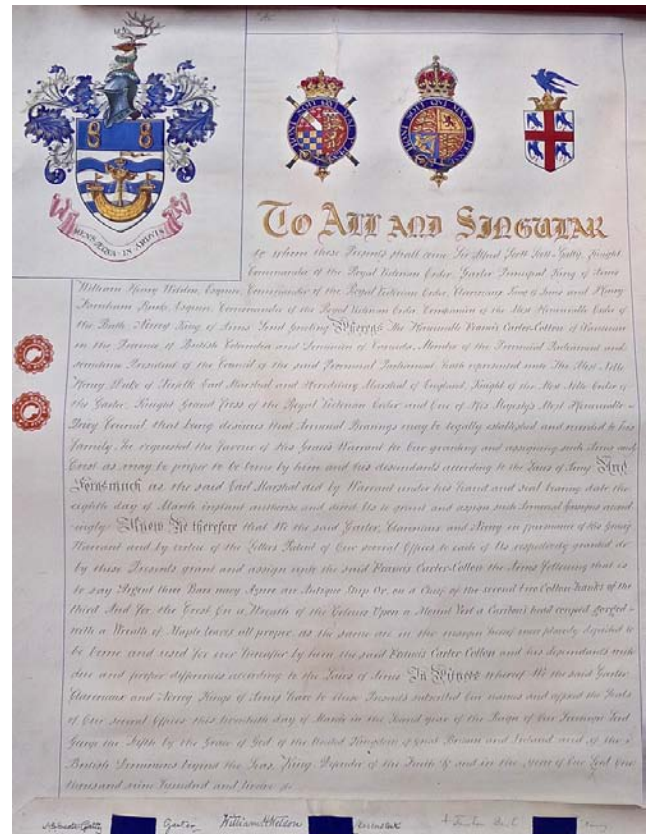 MENS ÆQUA IN ARDUIS
HONI SOIT QUI MAL Y PENSE
HONI SOIT QUI MAL Y PENSE
TO ALL AND SINGULAR
to whom these Presents shall come Sir Alfred Scott Scott-Gatty, Knight
Commander of the Royal Victorian Order Garter Principal King of Arms
William Henry Weldon, Esquire, Commander of the Royal Victorian Order, Clarenceux King of Arms and Henry
Farnham Burke, Esquire, Commander of the Royal Victorian Order, Companion of the Most Honorable Order of
the Bath, Norroy King of Arms Send Greeting Whereas The Honorable Francis Carter-Cotton of
in the Province of British Columbia and Dominion of Canada, Member of the Provincial Parliament and
President of the Council of the said Provincial Parliament hath represented unto The Most Noble
Henry, Duke of Norfolk Earl Marshal and Hereditary Marshal of England, Knight of the Most Noble Order of
the Garter, Knight Grand Cross of the Royal Victorian Order and One of His Majesty's Most Honorable
Privy Council that being desirous that Armorial Bearings may be legally established and to his
family, he requested the favour of His Grace's Warrant for Our granting and assigning such Arms and
Crest as may be proper to be borne by him and his descendants according to the Laws of Arms And
Forasmuch as the said Earl Marshal did by Warrant under his hand and seal bearing date the
eighth day of March instant authorize and direct Us to grant and assign such Armorial Ensigns accord-
ingly Know Ye therefore that We the said Garter, Clarenceux and Norroy in pursuance of His Grace's
Warrant and by virtue of the Letters Patent of Our several Offices to each of Us respectively granted do
by these Presents grant and assign unto the said Francis Carter-Cotton the Arms following that is
to say Argent three Bars wavy Azure an Antique Ship Or, on a Chief of the second two Cotton hanks of the
third And for the Crest On a Wreath of the Colours Upon a Mount Vert a Caribou's head couped gorged
with a Wreath of Maple leaves all proper as the same are in the margin hereof more plainly depicted to
be borne and used for ever hereafter by him the said Francis Carter Cotton and his descendants with
due and proper differences according to the Laws of Arms In Witness whereof We the said Garter
Clarenceux and Norroy Kings of Arms have to these Presents subscribed Our names and affixed the Seals
of Our several Offices this day of March in the year of the Reign of Our Sovereign Lord
George the Fifth by the Grace of God of the United Kingdom of Great Britain and Ireland and of the
British Dominions beyond the Seas, King, Defender of the Faith &c and in the Year of Our Lord One
thousand nine hundred and twelve
Garter William H Weldon Clarenceux Norroy